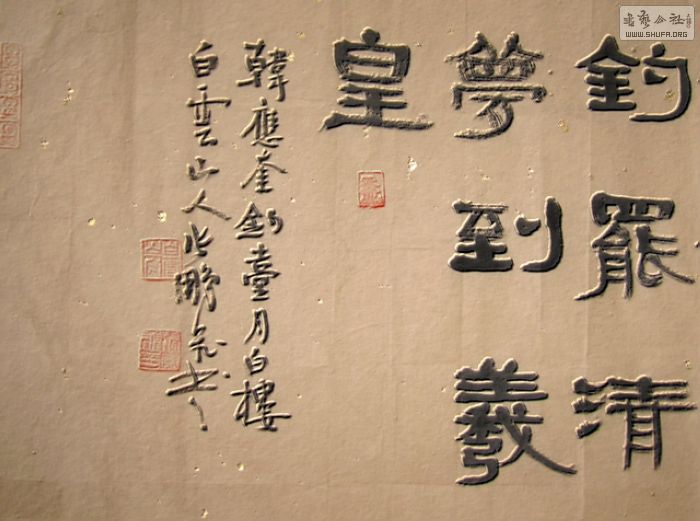 釣罷清
夢到羲
皇
韓應奎釣臺月白樓
白雲山人
書藝公社
WWW.SHUFA.ORG